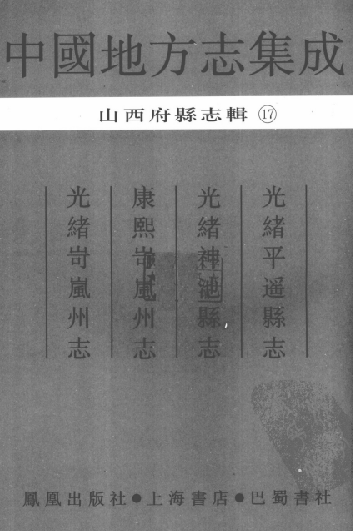 中國地方志集成
山西府縣志輯⑰
光緒平遥縣志
光緒神池縣志
康熙岢嵐州志
光緒岢嵐州志
鳳凰出版社●上海書店●巴蜀書社